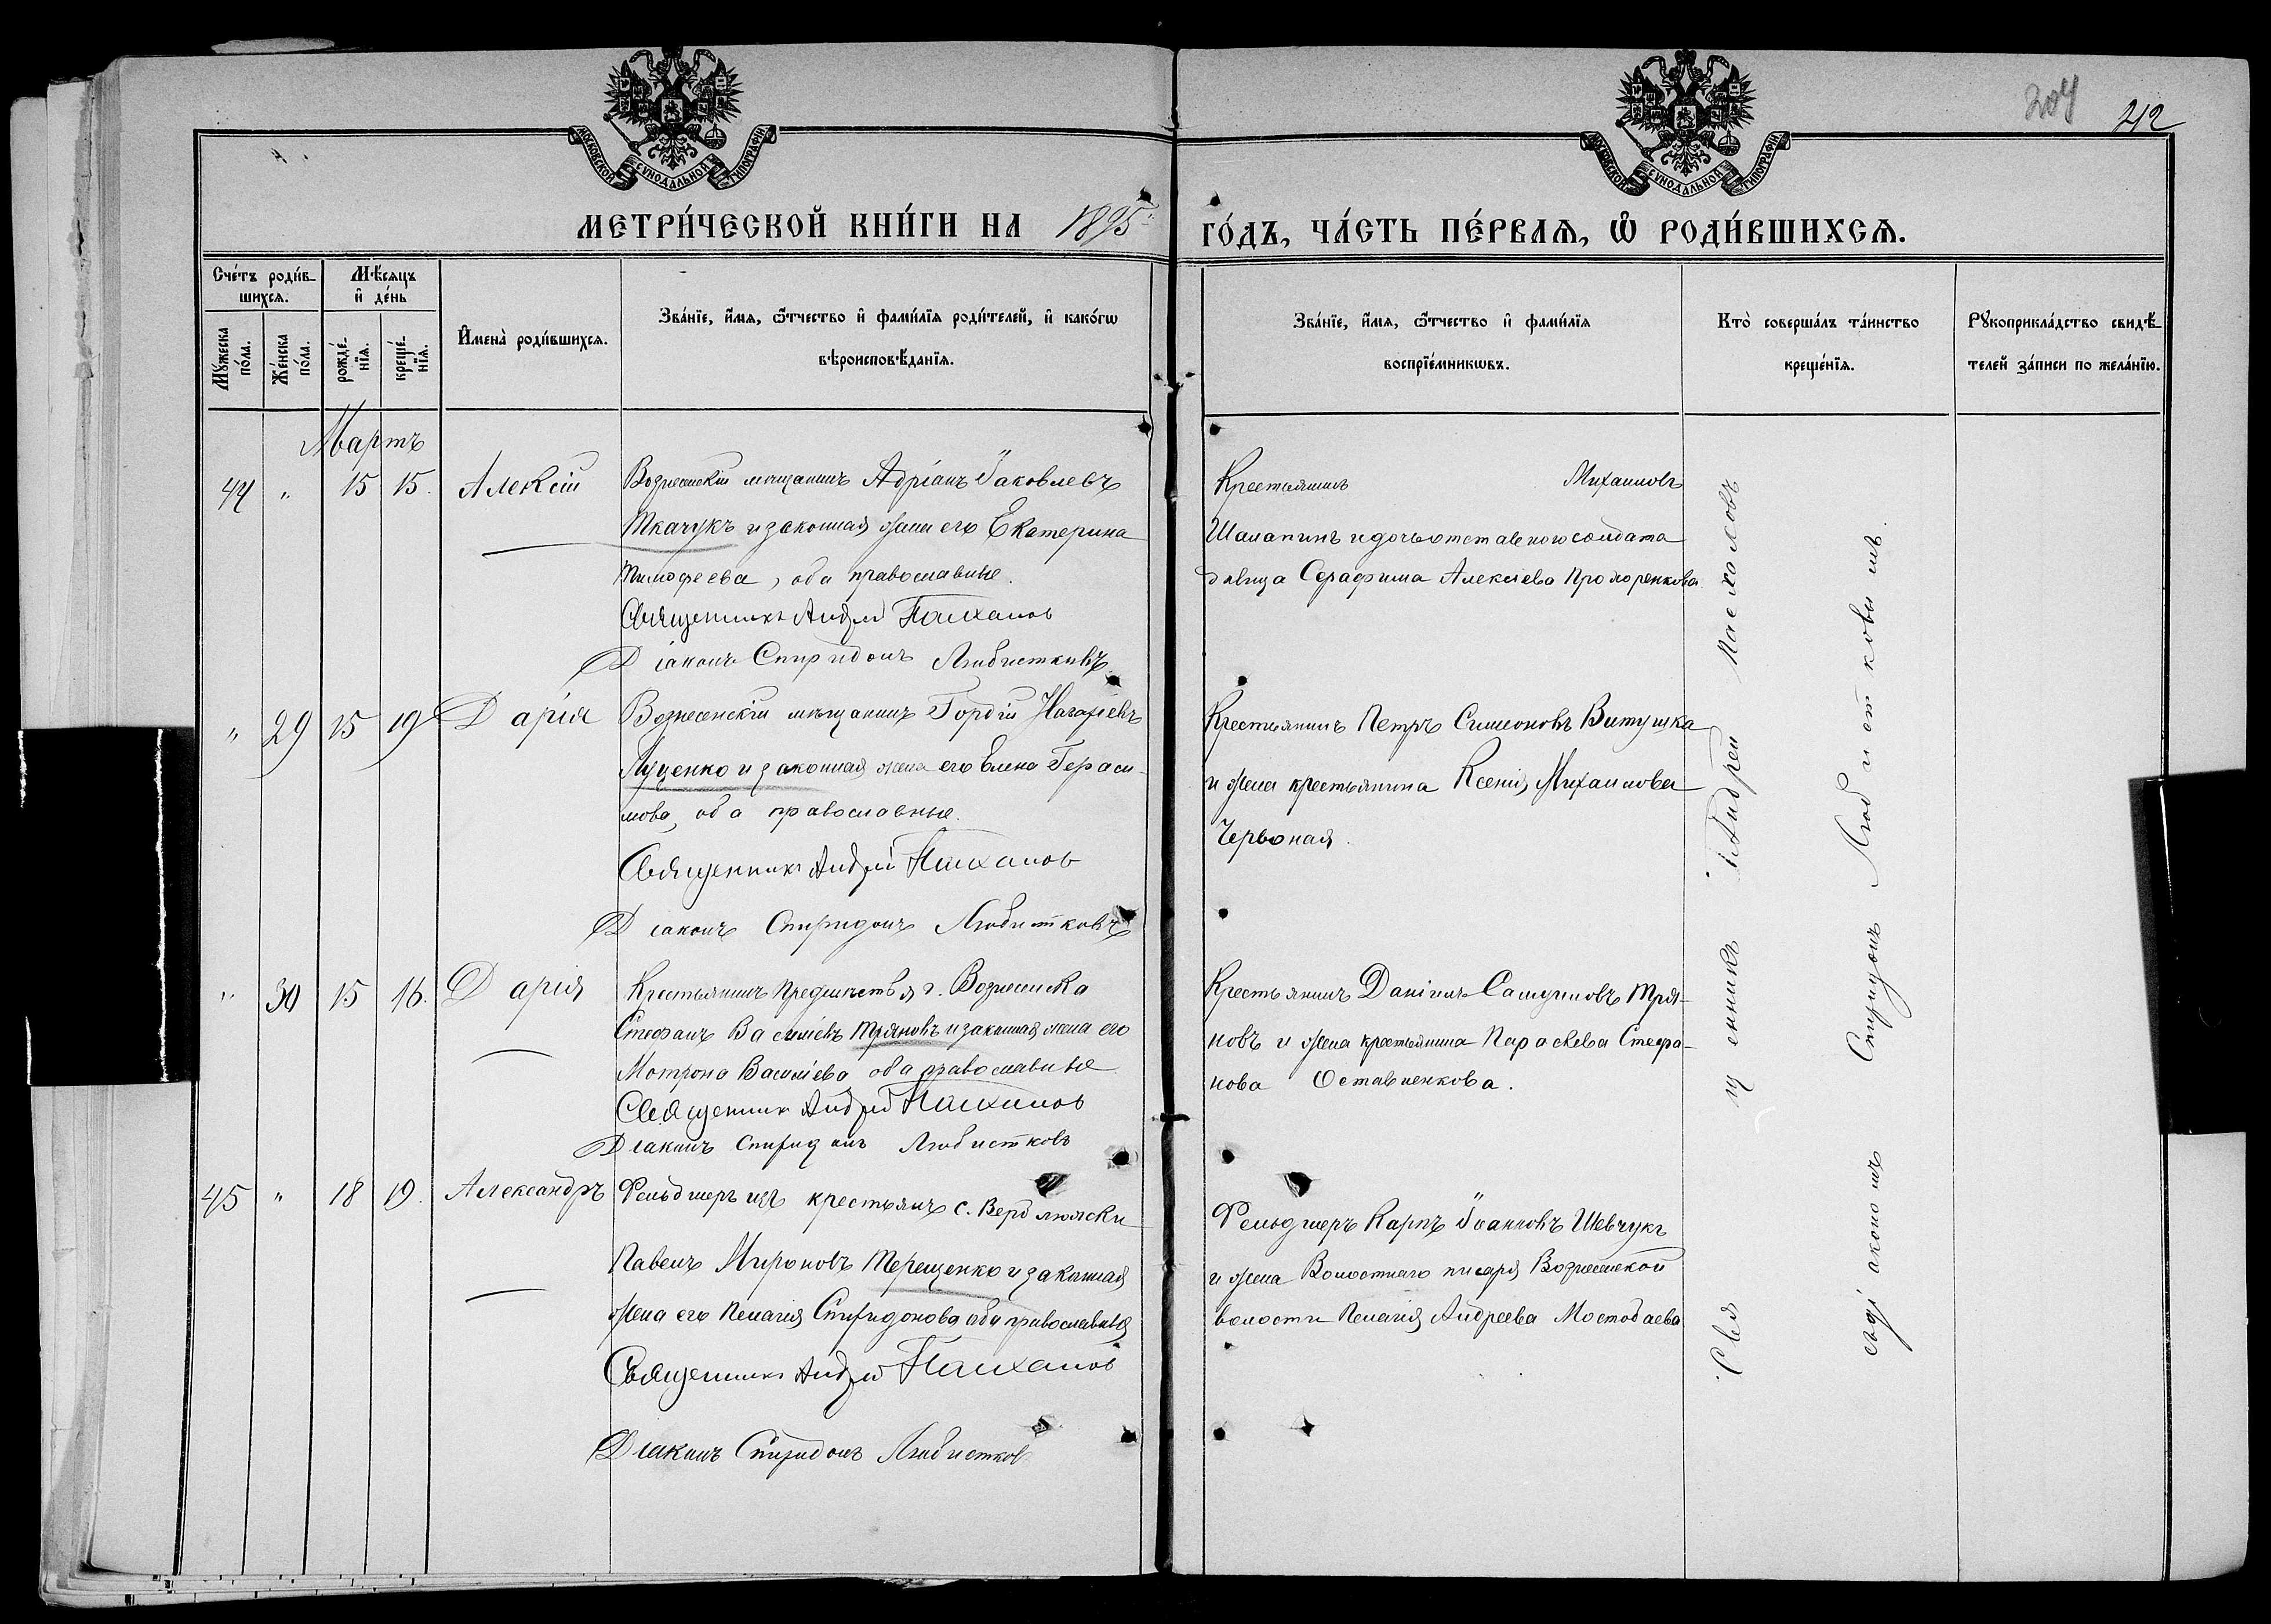 204
212
МОСКОВСКОЙ СУНОДАЛЬНОЙ ТИПОГРАФІИ
МОСКОВСКОЙ СУНОДАЛЬНОЙ ТИПОГРАФІИ
МЕТРИ́ЧЕСКОЙ КНИ́ГИ НА 1895 ГО́ДЪ, ЧА́СТЬ ПЕ́РВАЯ, Ѡ РОДИ́ВШИХСЯ.
Сче́тъ роди́в-
шихся.
Мꙋ́жеска по́ла.
Же́нска по́ла.
Мѣ́сяцъ и де́нь
рожде́-
нїя.
креще́-
нїя.
Имена̀ роди́вшихся.
Зва́нїе, и́мя, ѻ́тчество и фами́лїя роди́телей, и како́гѡ
вѣроисповѣ́данїя.
Зва́нїе, и́мя, ѻ́тчество и фами́лїя
воспрїе́мникѡвъ.
Кто̀ соверша́лъ та́инство
креще́нїя.
Рꙋкоприкла́дство свидѣ́-
телей за́писи по жела́нїю.
Мартъ
44 " 15 15. Алексій
Вознесенскій мѣщанинъ Адріанъ Іаковлевъ
Ткачукъ и законная жена его Екатерина
Тимофеева, оба православные.
Священникъ Андрей
Діаконъ Спиридонъ Любистковъ
Крестьянинъ Михаиловъ
и дочь отставного солдата
дѣвица Серафима Алексіева Прохоренкова.
" 29 15 19 Дарія
Вознесенскій мѣщанинъ Гордій
Луценко и законная жена его Елена Гераси-
мова, оба православные.
Священникъ Андрей
Діаконъ Спиридонъ Любистковъ
Крестьянинъ Петръ Симеоновъ Витушка
и жена крестьянина Ксенія Михаилова
Червоная.
" 30 15 16. Дарія
Крестьянинъ предмѣстья г. Вознесенска
Стефанъ Василіевъ Тряновъ и законная жена его
Мотрона Василіева оба православные
Священник Андрей
Діаконъ Спиридонъ Любистковъ
Крестьянинъ Даніилъ Самуиловъ Тря-
новъ и жена крестьянина Параскева Стефа-
нова Оставненкова.
45 " 18 19. Александръ
Фельдшеръ изъ крестьянъ с. Верблюжки
Павелъ Мироновъ Терещенко и законная
жена его Пелагія Спиридонова оба православныя
Священникъ Андрей
Діаконъ Спиридонъ Любистков
Фельдшеръ Карпъ Іоанновъ Шевчукъ
и жена Волостнаго писаря Вознесенской
волости Пелагія Андреева Мостобаева
Священникъ Андрей
съ діакономъ Спиридонъ Любистковымъ.